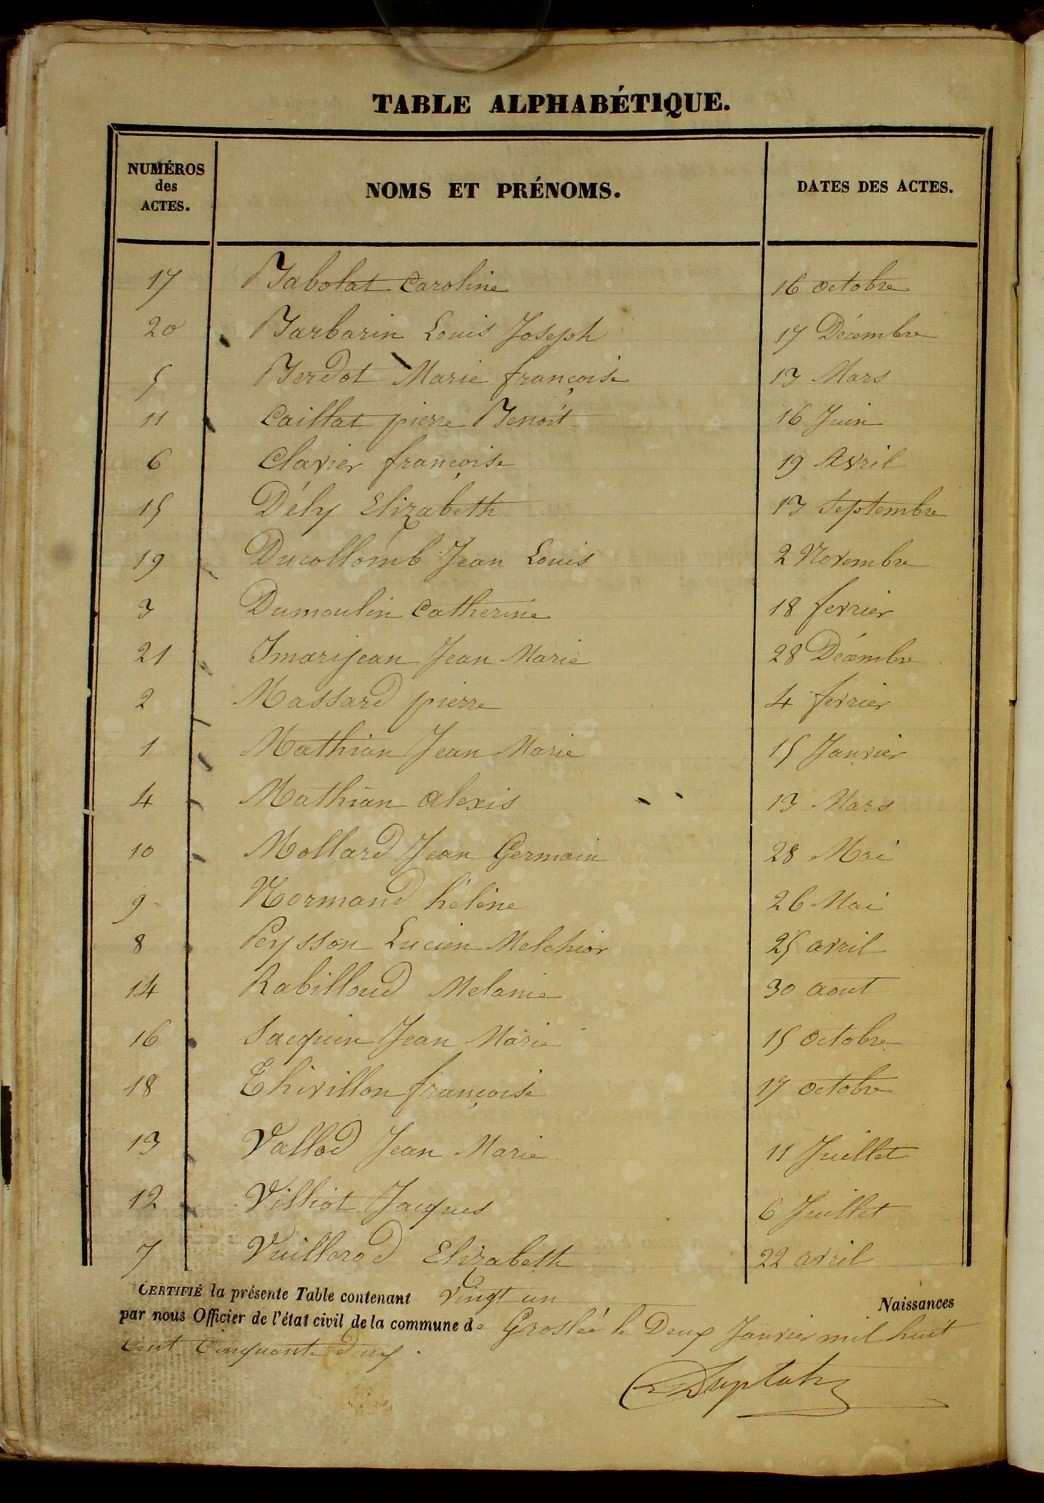 TABLE ALPHABÉTIQUE.
NUMÉROS des ACTES. NOMS ET PRÉNOMS. DATES DES ACTES.
17 Babolat Caroline 16 octobre
20 Barbarin Louis Joseph 17 Décembre
5 Berdot Marie françoise 13 Mars
11 Caillat pierre Benoit 16 Juin
6 Clavier françoise 19 Avril
15 Dély Elizabeth 13 Septembre
19 Ducollomb Jean Louis 2 Novembre
3 Dumoulin Catherine 18 fevrier
21 Jmarijean Jean Marie 28 Décembre
2 Massard pierre 4 fevrier
1 Mathian Jean Marie 15 Janvier
4 Mathian alexis 13 Mars
10 Mollard Jean Germain 28 Mai
9 Normand hélène 26 Mai
8 Peysson Lucien Melchior 25 avril
14 Rabilloud Melanie 30 aout
16 Sacquin Jean Marie 15 octobre
18 Thivillon françoise 17 octobre
13 Vallod Jean Marie 11 Juillet
12 Villiot Jacques 6 Juillet
7 Vuillerod Elizabeth 22 avril
CERTIFIÉ la présente Table contenant Vingt un Naissances
par nous Officier de l'état civil de la commune de Groslée le Deux Janvier mil huit
Cent Cinquante Deux.